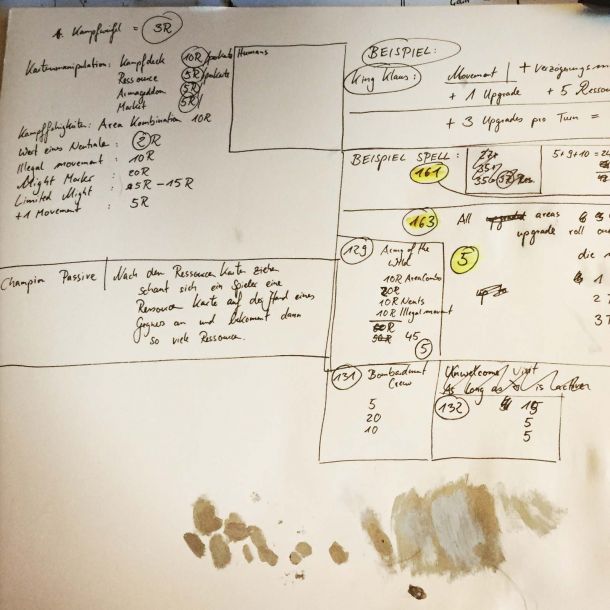 1. Kampfwürfel = 3R
Kartenmanipulation: Kampfdeck 10R / pro Karte
Ressource 5R / pro Karte
Armageddon 5R
Market 5R
Kampffähigkeiten: Area Kombination 10R
Wert eines Neutrale: 2R
Illegal movement : 10R
Might Marker : 20R
Limited Might : 5R - 15R
+1 Movement : 5R
Humans
Champion Passive | Nach dem Ressourcen Karten ziehen
schaut sich ein Spieler eine
Ressourcen Karte auf der Hand eines
Gegners an und bekommt dann
so viele Ressourcen.
BEISPIEL:
King Klaus: Movement | + Verzögerungs
+ 1 Upgrade + 5 Resso
+ 3 Upgrades pro Turn =
BEISPIEL SPELL:
161
5+9+10 = 24
163 All areas
upgrade roll
die
1
2
3
129 Army of the
Wild
10R AreaCombo
20R
10R Neuts
10R Illegal movement
45
5
5
131 Bombardment
Crew
5
20
10
Unwelcome visit
As long as is
132 15
5
5